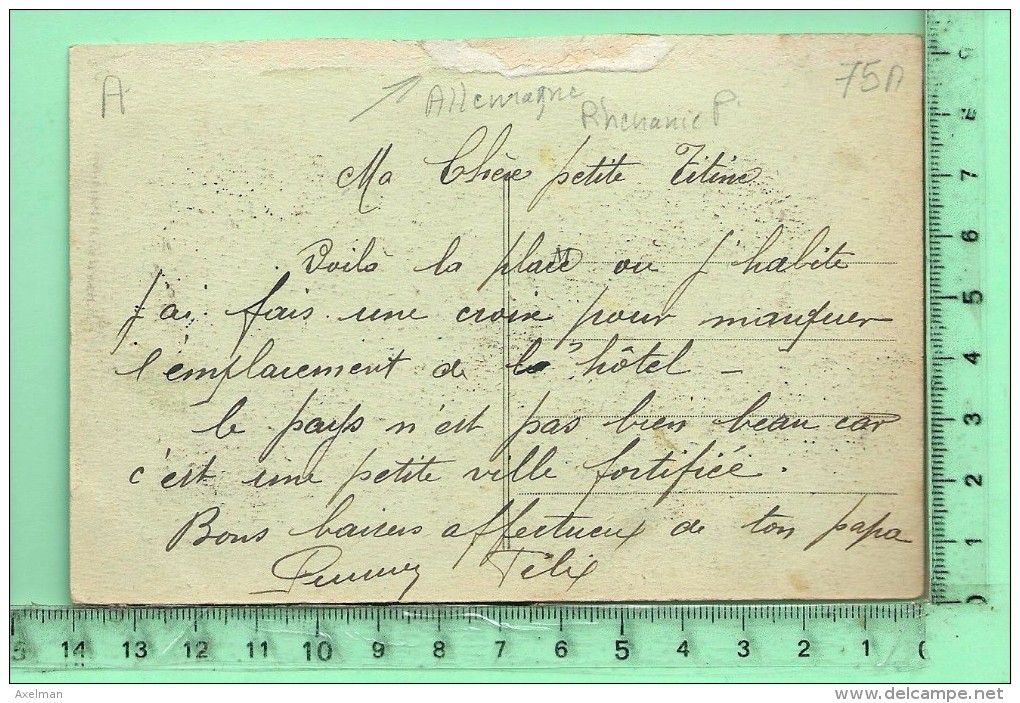 A Allemagne 75A
Rhenanie P.
Ma Chère petite Titine
Voilà la place ou j'habite
j'ai fais une croix pour marquer
l'emplacement de l'hôtel –
le pays n'est pas bien beau car
c'est une petite ville fortifiée.
Bons baisers affectueux de ton papa
Félix
8 7 6 5 4 3 2 1 0
15 14 13 12 11 10 9 8 7 6 5 4 3 2 1 0
Axelman
www.delcampe.net